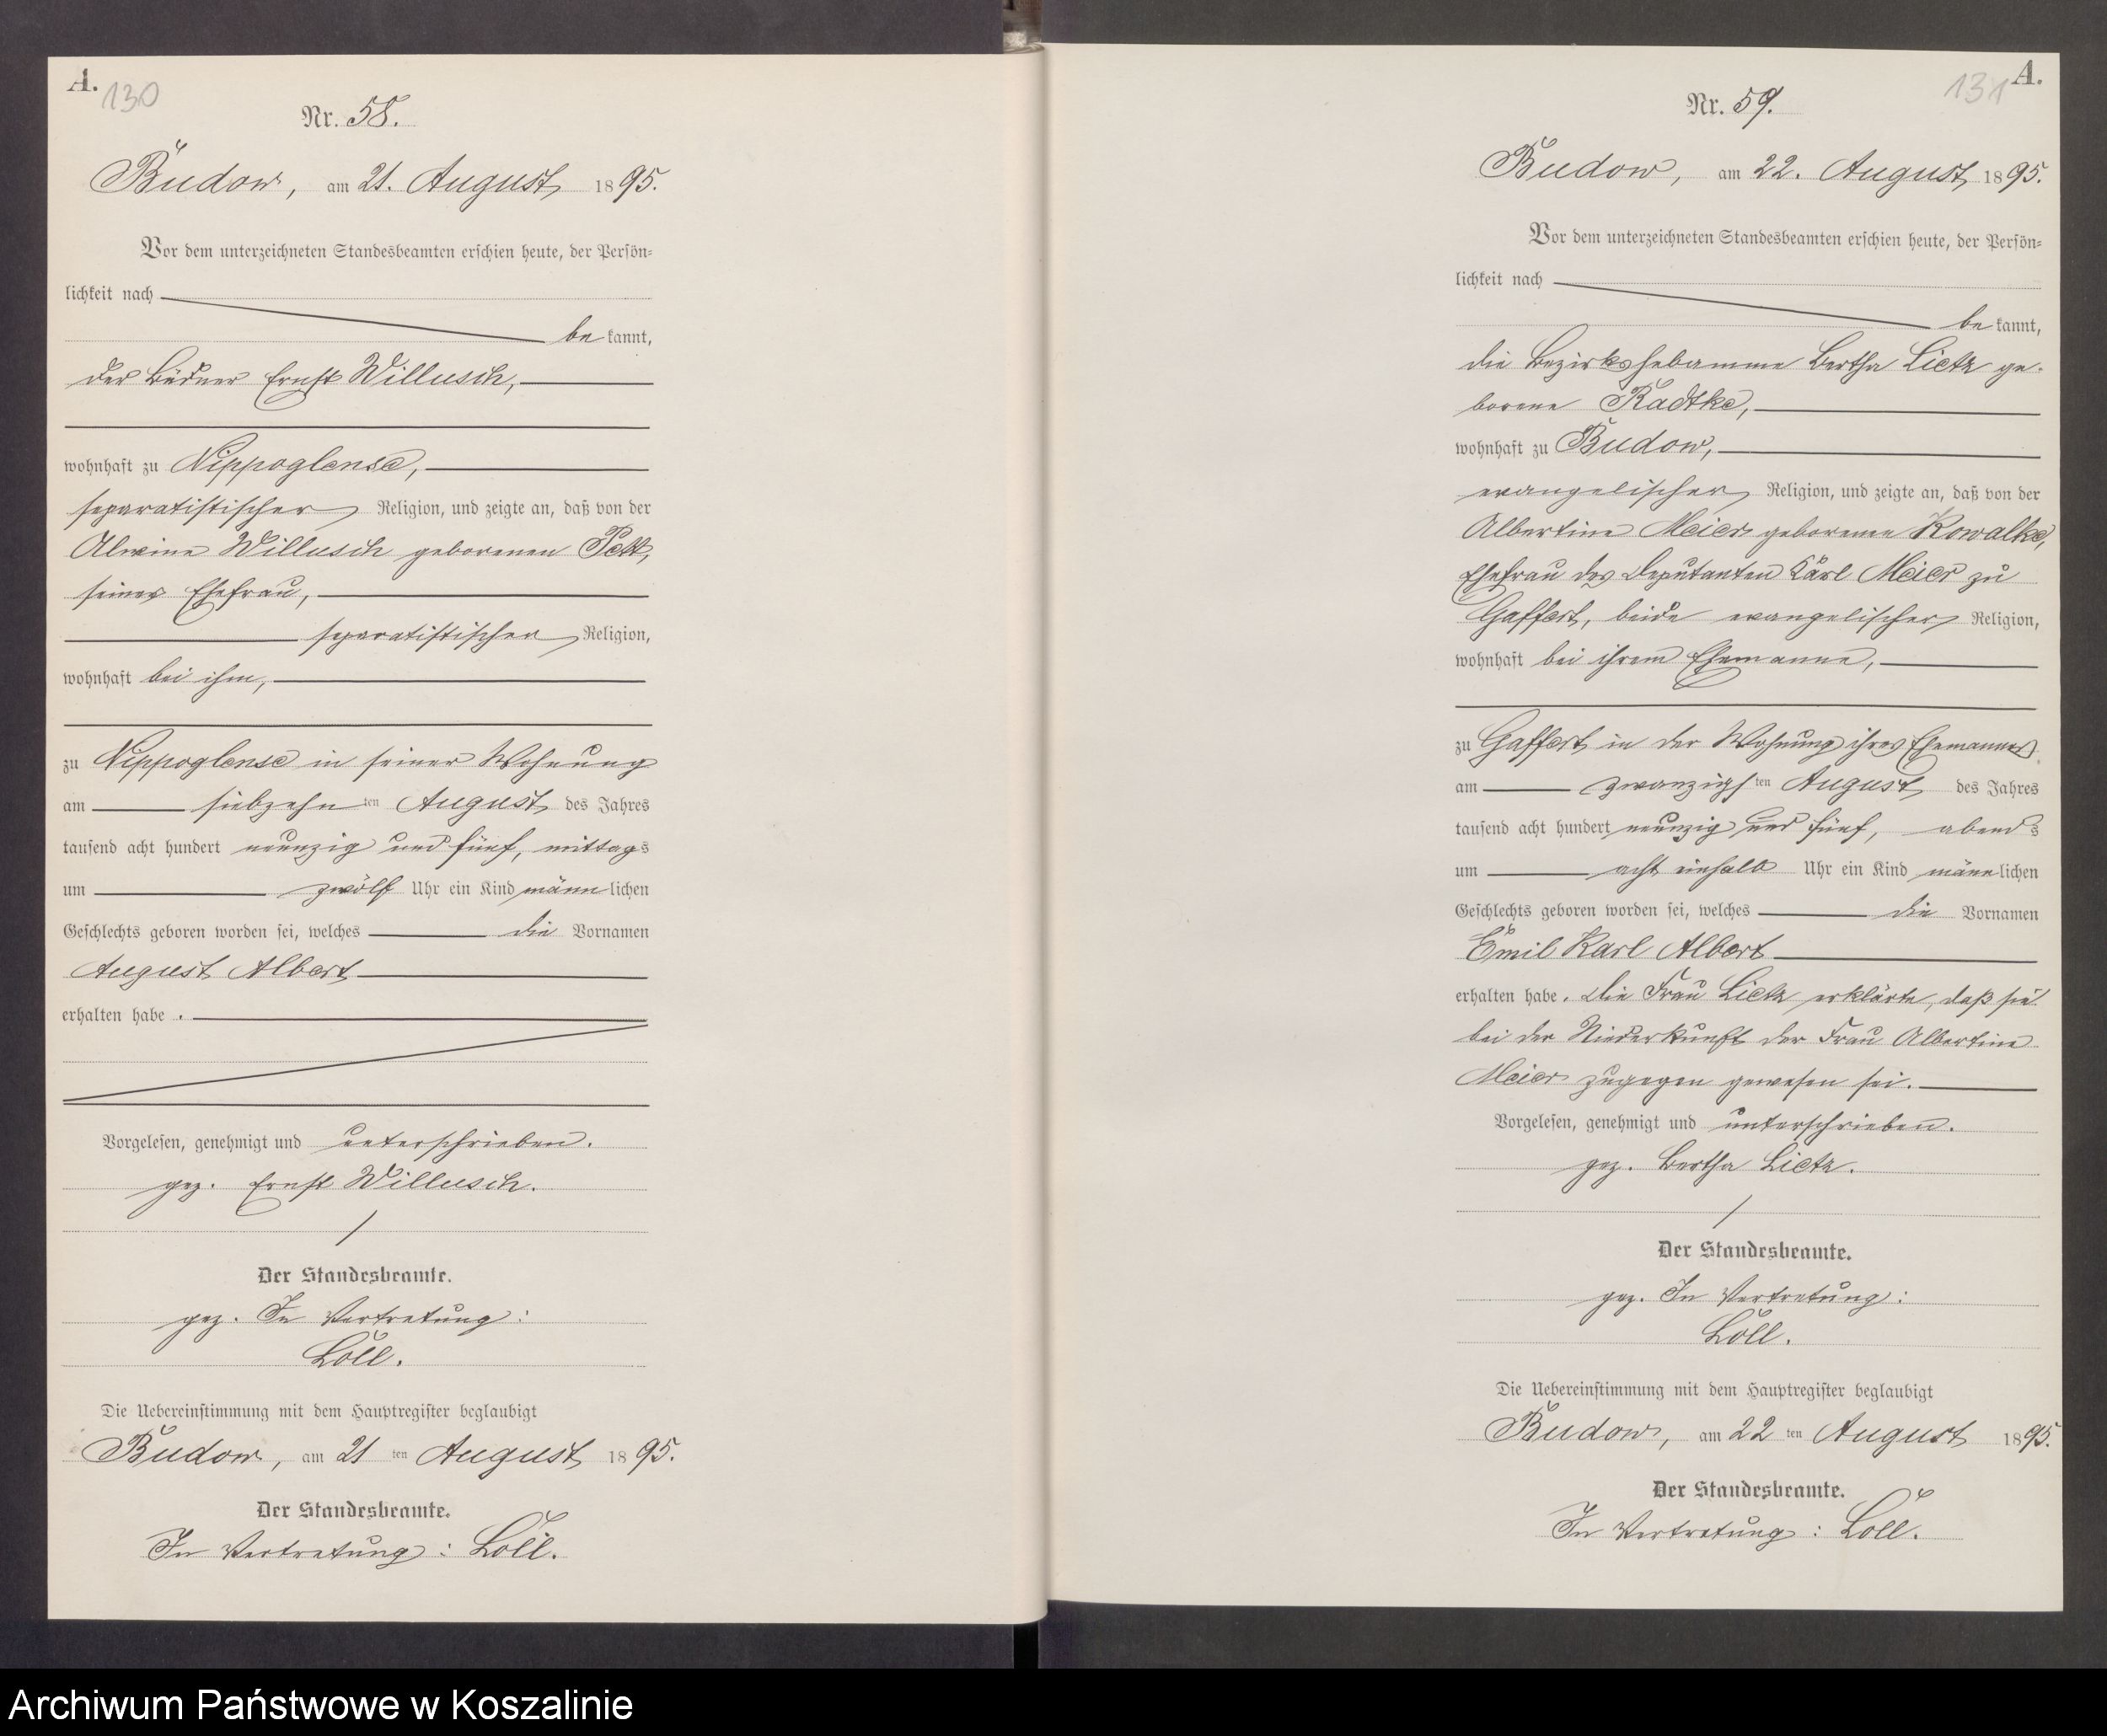 A.
130
Nr. 58.
Budow, am 21. August 1895.
Vor dem unterzeichneten Standesbeamten erschien heute, der Persön-
lichkeit nach
bekannt,
der Büdner Ernst Willusch,
wohnhaft zu Nippoglense,
separatistischer Religion, und zeigte an, daß von der
Alwine Willusch geborenen Pett,
seiner Ehefrau,
separatistischer Religion,
wohnhaft bei ihm,
zu Nippoglense in seiner Wohnung
am siebzehnten August des Jahres
tausend acht hundert neunzig und fünf, mittags
um zwölf Uhr ein Kind männlichen
Geschlechts geboren worden sei, welches die Vornamen
August Albert
erhalten habe.
Vorgelesen, genehmigt und unterschrieben.
gez. Ernst Willusch.
Der Standesbeamte.
gez. In Vertretung:
Löll.
Die Uebereinstimmung mit dem Hauptregister beglaubigt
Budow, am 21ten August 1895.
Der Standesbeamte.
In Vertretung: Löll.
131
A.
Nr. 59.
Budow, am 22. August 1895.
Vor dem unterzeichneten Standesbeamten erschien heute, der Persön-
lichkeit nach
bekannt,
die Bezirkshebamme Bertha Lietz ge-
borene Radtke,
wohnhaft zu Budow,
evangelischer Religion, und zeigte an, daß von der
Albertine Meier geborene Kowalke,
Ehefrau des Deputanten Karl Meier zu
Gaffert, beide evangelischer Religion,
wohnhaft bei ihrem Ehemanne,
zu Gaffert in der Wohnung ihres Ehemannes
am zwanzigsten August des Jahres
tausend acht hundert neunzig und fünf, abends
um acht einhalb Uhr ein Kind männlichen
Geschlechts geboren worden sei, welches die Vornamen
Emil Karl Albert
erhalten habe. Die Frau Lietz erklärte, daß sie
bei der Niederkunft der Frau Albertine
Meier zugegen gewesen sei.
Vorgelesen, genehmigt und unterschrieben.
gez. Bertha Lietz.
Der Standesbeamte.
gez. In Vertretung:
Löll.
Die Uebereinstimmung mit dem Hauptregister beglaubigt
Budow, am 22ten August 1895.
Der Standesbeamte.
In Vertretung: Löll.
Archiwum Państwowe w Koszalinie